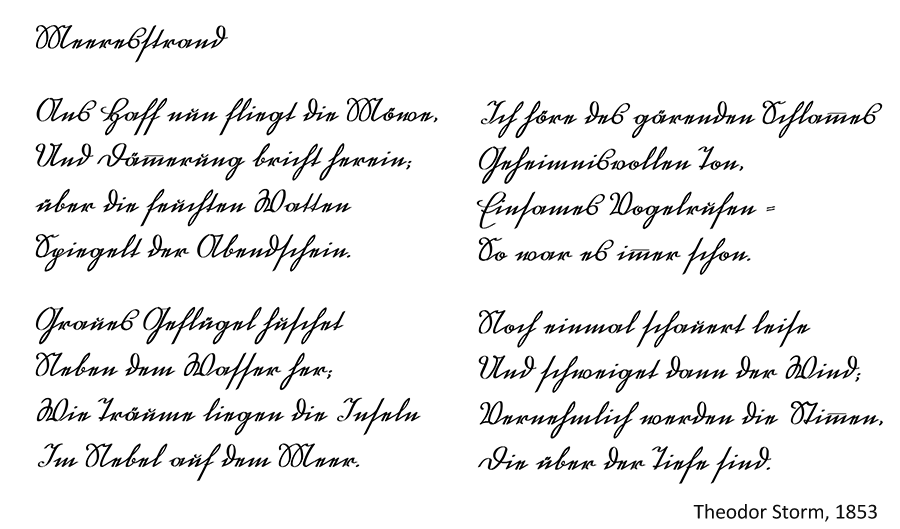 Meeresstrand
Ans Haff nun fliegt die Möwe,
Und Däm̅erung bricht herein;
über die feuchten Watten
Spiegelt der Abendschein.
Graues Geflügel huschet
Neben dem Wasser her;
Wie Träume liegen die Inseln
Im Nebel auf dem Meer.
Ich höre des gärenden Schlam̅es
Geheimnisvollen Ton,
Einsames Vogelrufen =
So war es im̅er schon.
Noch einmal schauert leise
Und schweiget dann der Wind;
Vernehmlich werden die Stim̅en,
Die über der Tiefe sind.
Theodor Storm, 1853